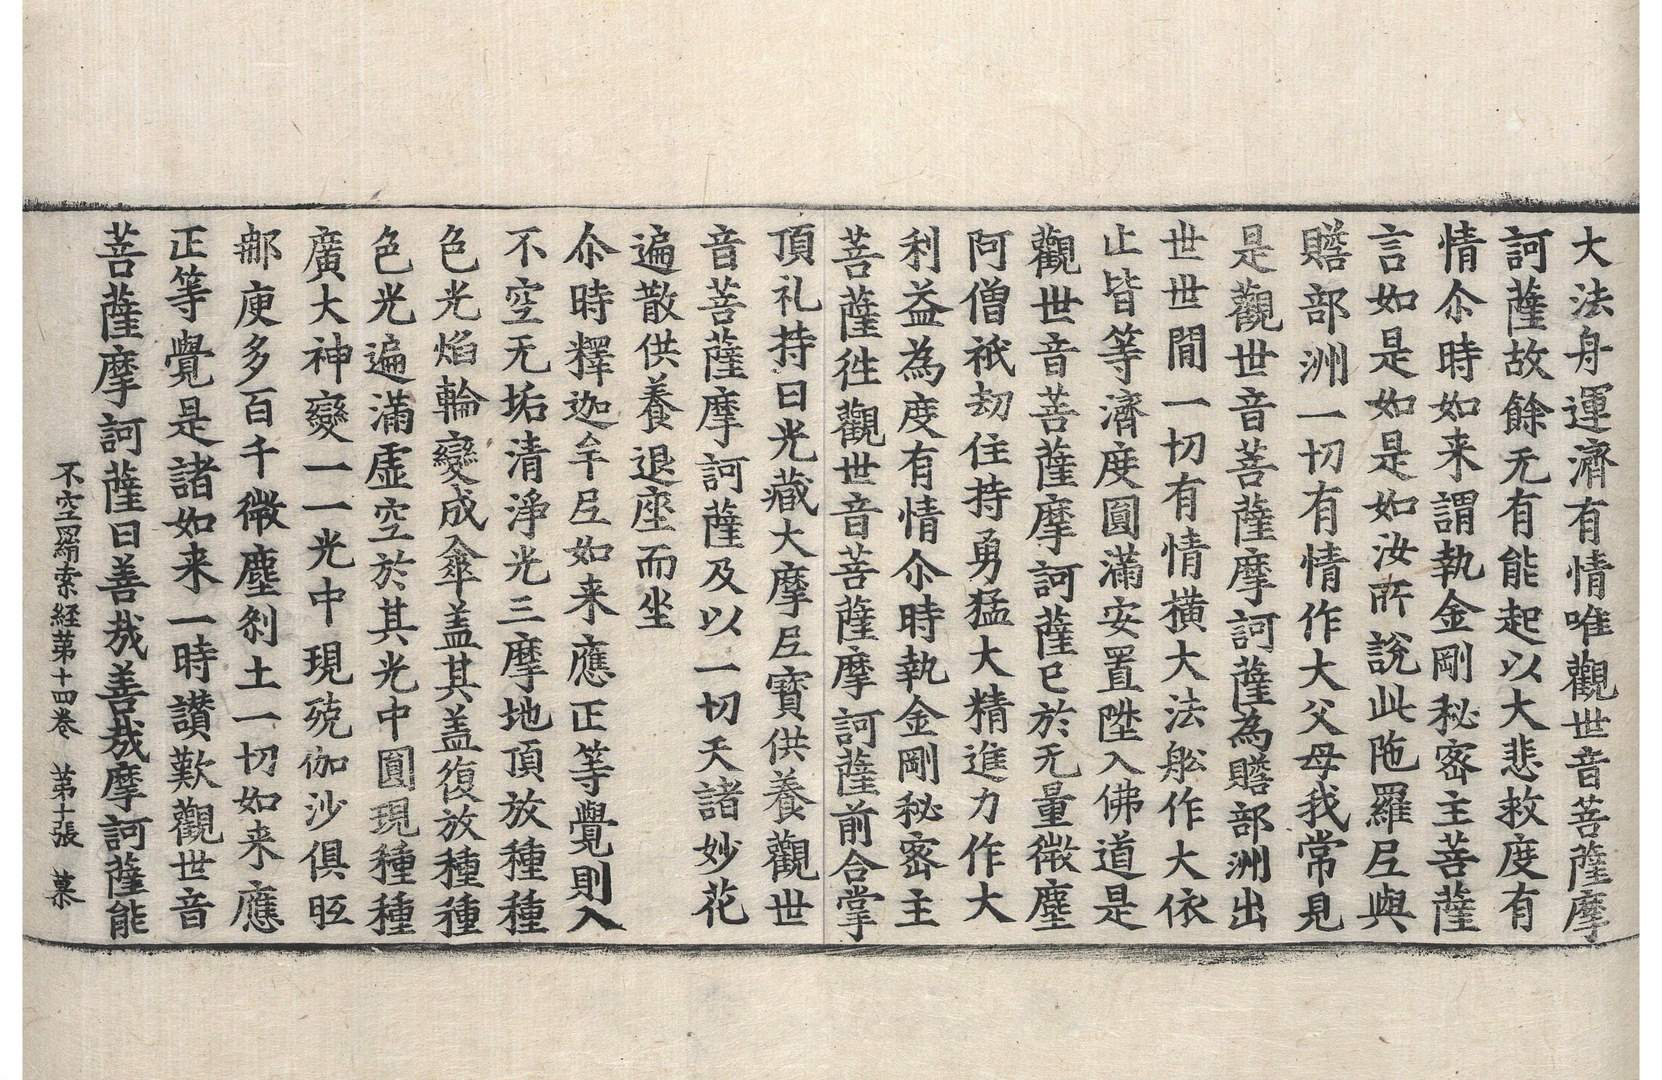 大法舟運濟有情唯觀世音菩薩摩
訶薩故餘无有能起以大悲救度有
情尒時如来謂執金剛秘密主菩薩
言如是如是如汝所說此陁羅𡰱與
贍部洲一切有情作大父母我常見
是觀世音菩薩摩訶薩為贍部洲出
世世間一切有情橫大法舩作大依
止皆等濟度圓滿安置陞入佛道是
觀世音菩薩摩訶薩已於无量微塵
阿僧祇劫住持勇猛大精進力作大
利益為度有情尒時執金剛秘密主
菩薩徃觀世音菩薩摩訶薩前合掌
頂礼持日光藏大摩𡰱寶供養觀世
音菩薩摩訶薩及以一切天諸妙花
遍散供養退座而坐
尒時釋迦牟𡰱如来應正等覺則入
不空无垢清淨光三摩地頂放種種
色光焰輪變成傘盖其盖復放種種
色光遍滿虛空於其光中圓現種種
廣大神變一一光中現殑伽沙俱胝
𨚗庾多百千微塵剎土一切如来應
正等覺是諸如来一時讃歎觀世音
菩薩摩訶薩曰善㢤善㢤摩訶薩能
不空羂索経苐十四卷 苐十張 慕